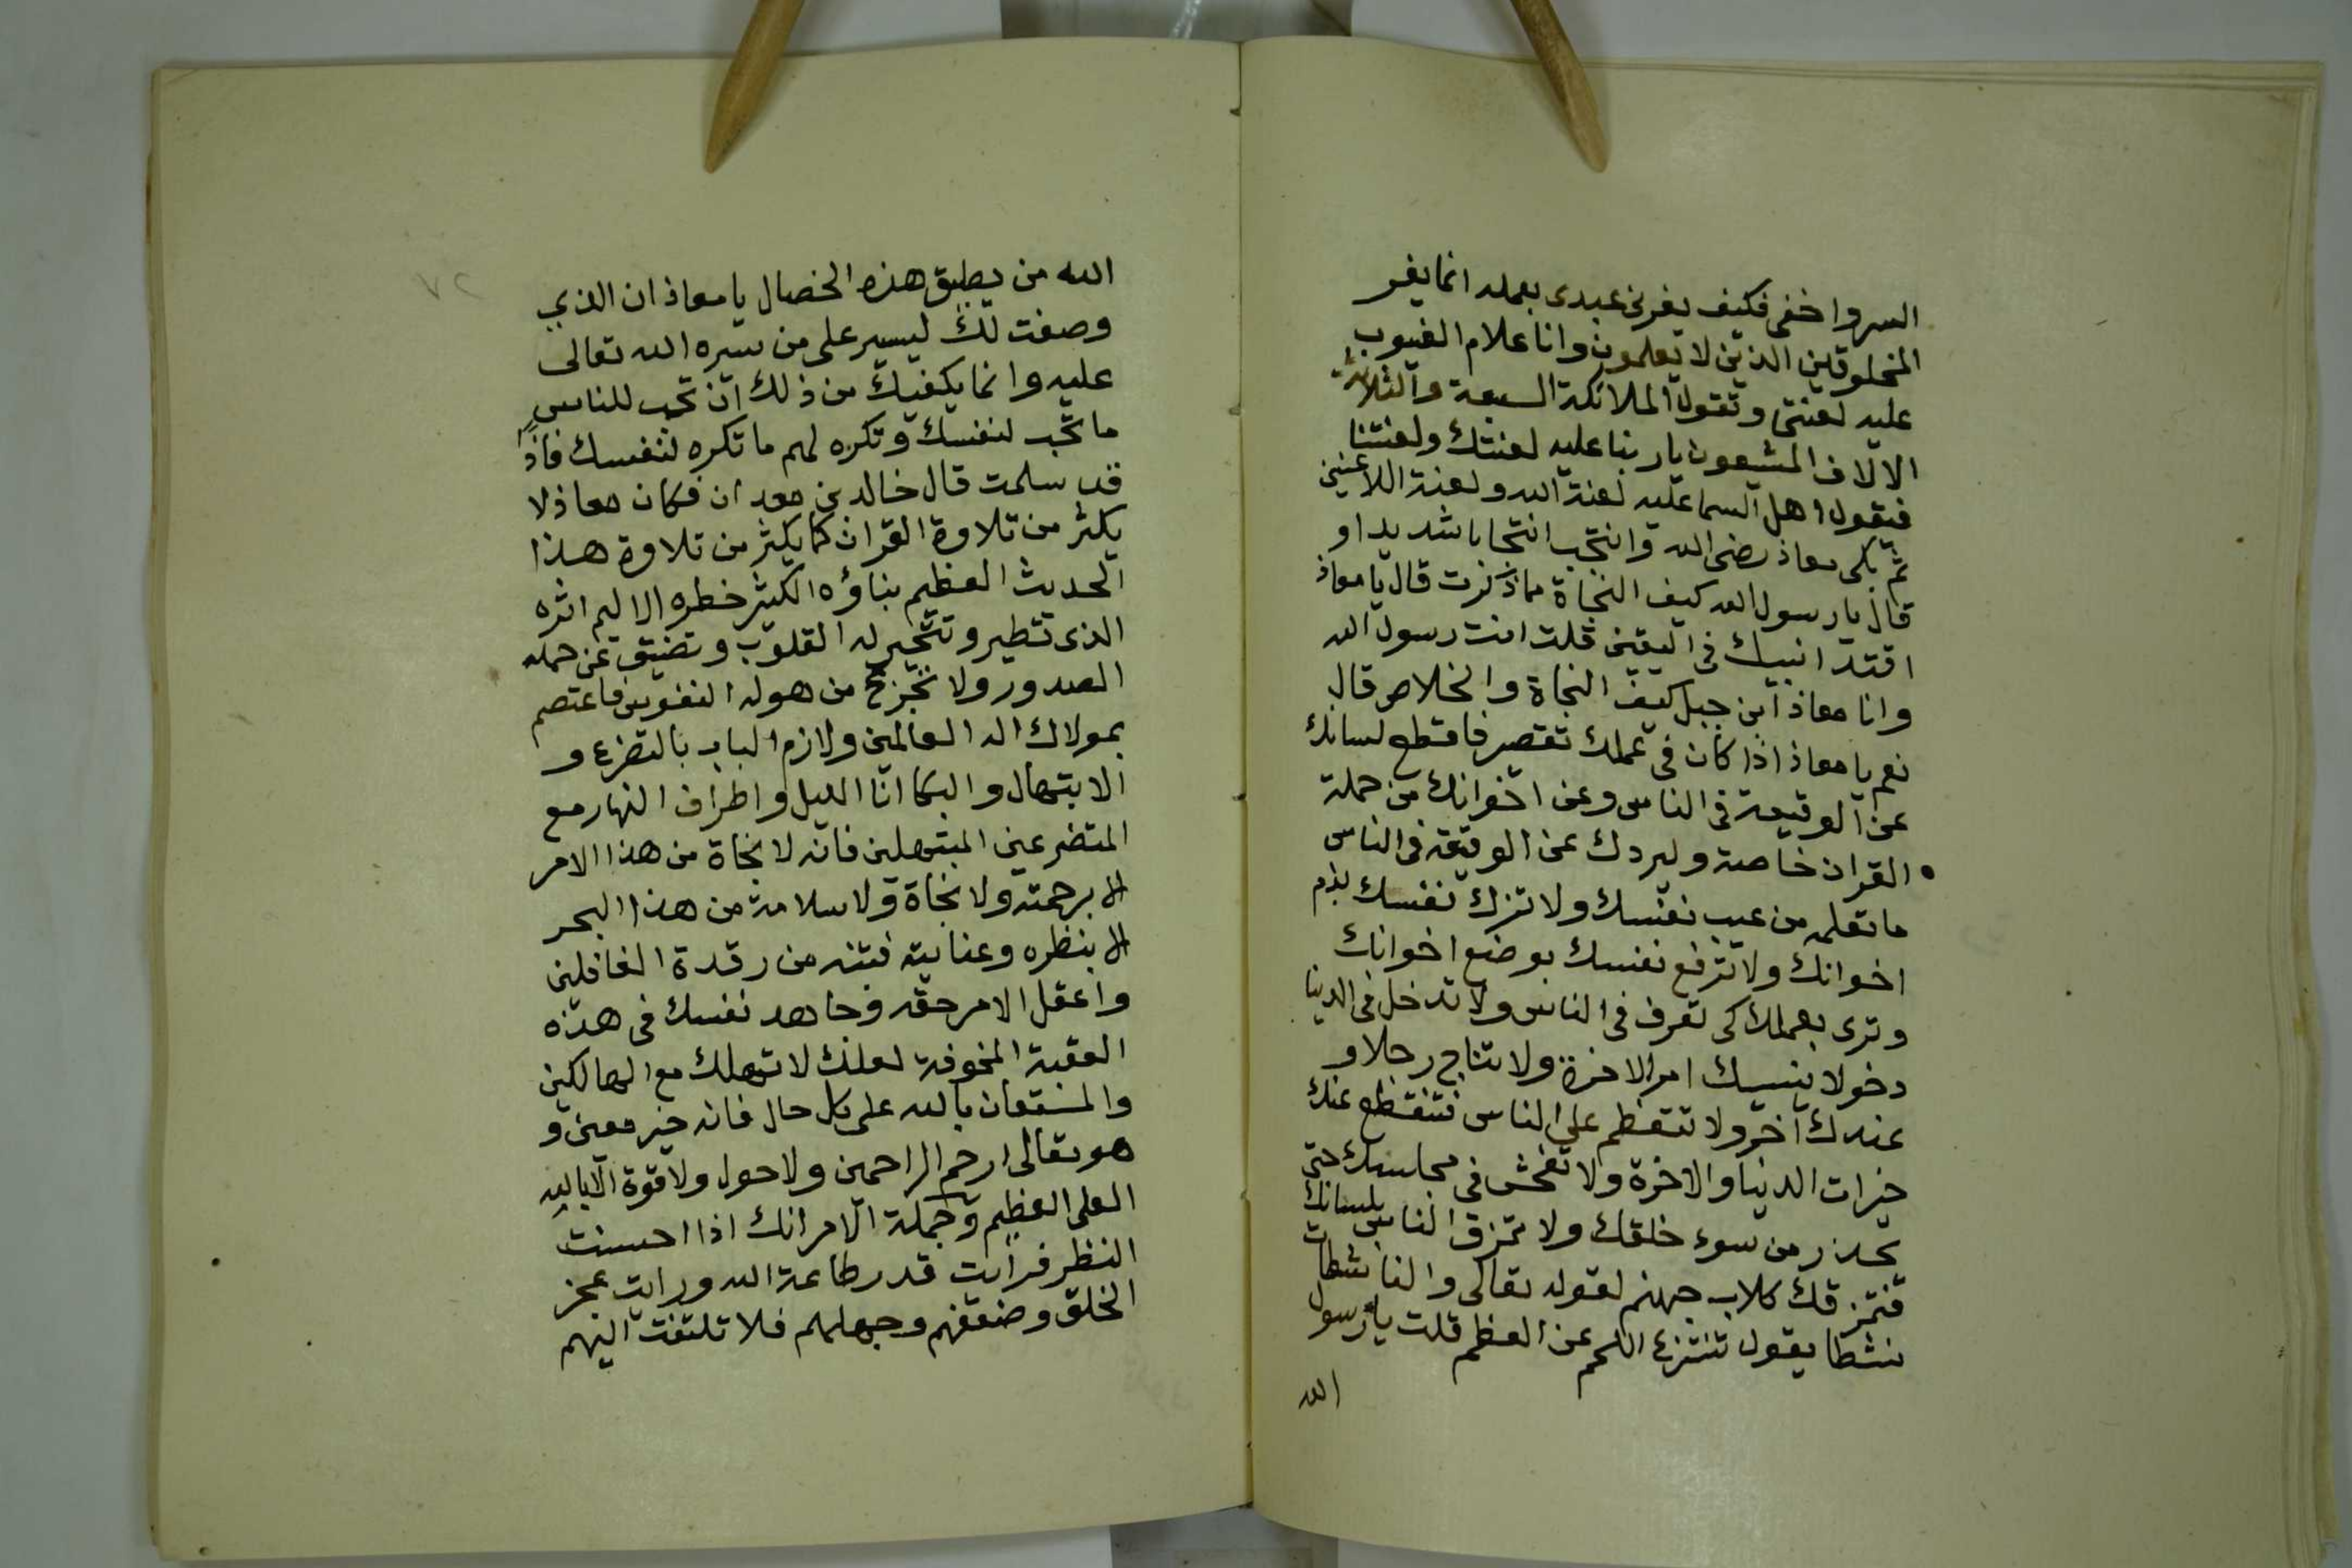 السر واخفى فكيف يغرنى عبدى بعمله انما يغر
المخلوقين الذين لا يعلمون وانا علام الغيوب
عليه لعنتى وتقول الملائكة السبعة والثلاثة
الالاف المشيعون يا ربنا عليه لعنتك ولعنتنا
فيقول اهل السما عليه لعنة الله ولعنة اللاعنين
ثم بكى معاذ رضى الله وانتحب انتحابا شديدا و
قال يا رسول الله كيف النجاة مما ذكرت قال يا معاذ
اقتد انبيك فى اليقين قلت انت رسول الله
وانا معاذ ابن جبل كيف النجاة والخلاص قال
نعم يا معاذ اذا كان فى عملك تقصير فاقطع لسانك
عن الوقيعة فى الناس وعن اخوانك من حملة
القران خاصة وليردك عن الوقيعة فى الناس
ما تعلمه من عيب نفسك ولا تزك نفسك بذم
اخوانك ولا ترفع نفسك بوضع اخوانك
وترى بعملك كى تعرف فى الناس ولا تدخل فى الدنيا
دخولا ينسيك امر الاخرة ولا تناج رجلا و
عندك آخر ولا تتعظم على الناس فتنقطع عنك
خيرات الدنيا والاخرة ولا تفحش فى مجلسك حتى
يحذر من سوء خلقك ولا تمزق الناس بلسانك
فتمزقك كلاب جهنم لقوله تعالى والناشطات
نشطا يقول تنتزع اللحم عن العظم قلت يا رسول
الله
٧٢
الله من يطيق هذه الخصال يا معاذ ان الذي
وصفت لك ليسير على من يسره الله تعالى
عليه وانما يكفيك من ذلك ان تحب للناس
ما تحب لنفسك وتكره لهم ما تكره لنفسك فاذًا
قد سلمت قال خالد بن معدان فكان معاذ لا
يكثر من تلاوة القران كما يكثر من تلاوة هذا
الحديث العظيم بناؤه الكثير خطره الاليم اثره
الذى تتطير وتتحير له القلوب وتضيق عن حمله
الصدور ولا تجزع من هوله النفوس فاعتصم
بمولاك اله العالمين ولازم الباب بالتضرع و
الابتهال والبكا انا الليل واطراف النهار مع
المتضرعين المبتهلين فانه لا نجاة من هذا الامر
الا برحمته ولا نجاة ولا سلامة من هذا البحر
الا بنظره وعنايته فتنه من رقدة الغافلين
واعقل الامر حقه وجاهد نفسك فى هذه
العقبة المخوفة لعلك لا تهلك مع الهالكين
والمستعان بالله على كل حال فانه خير معين و
هو تعالى ارحم الراحمين ولا حول ولا قوة الا بالله
العلى العظيم وجملة الامر انك اذا احسنت
النظر فرايت قدر طاعة الله ورايت عجز
الخلق وضعفهم وجهلهم فلا تلتفت اليهم